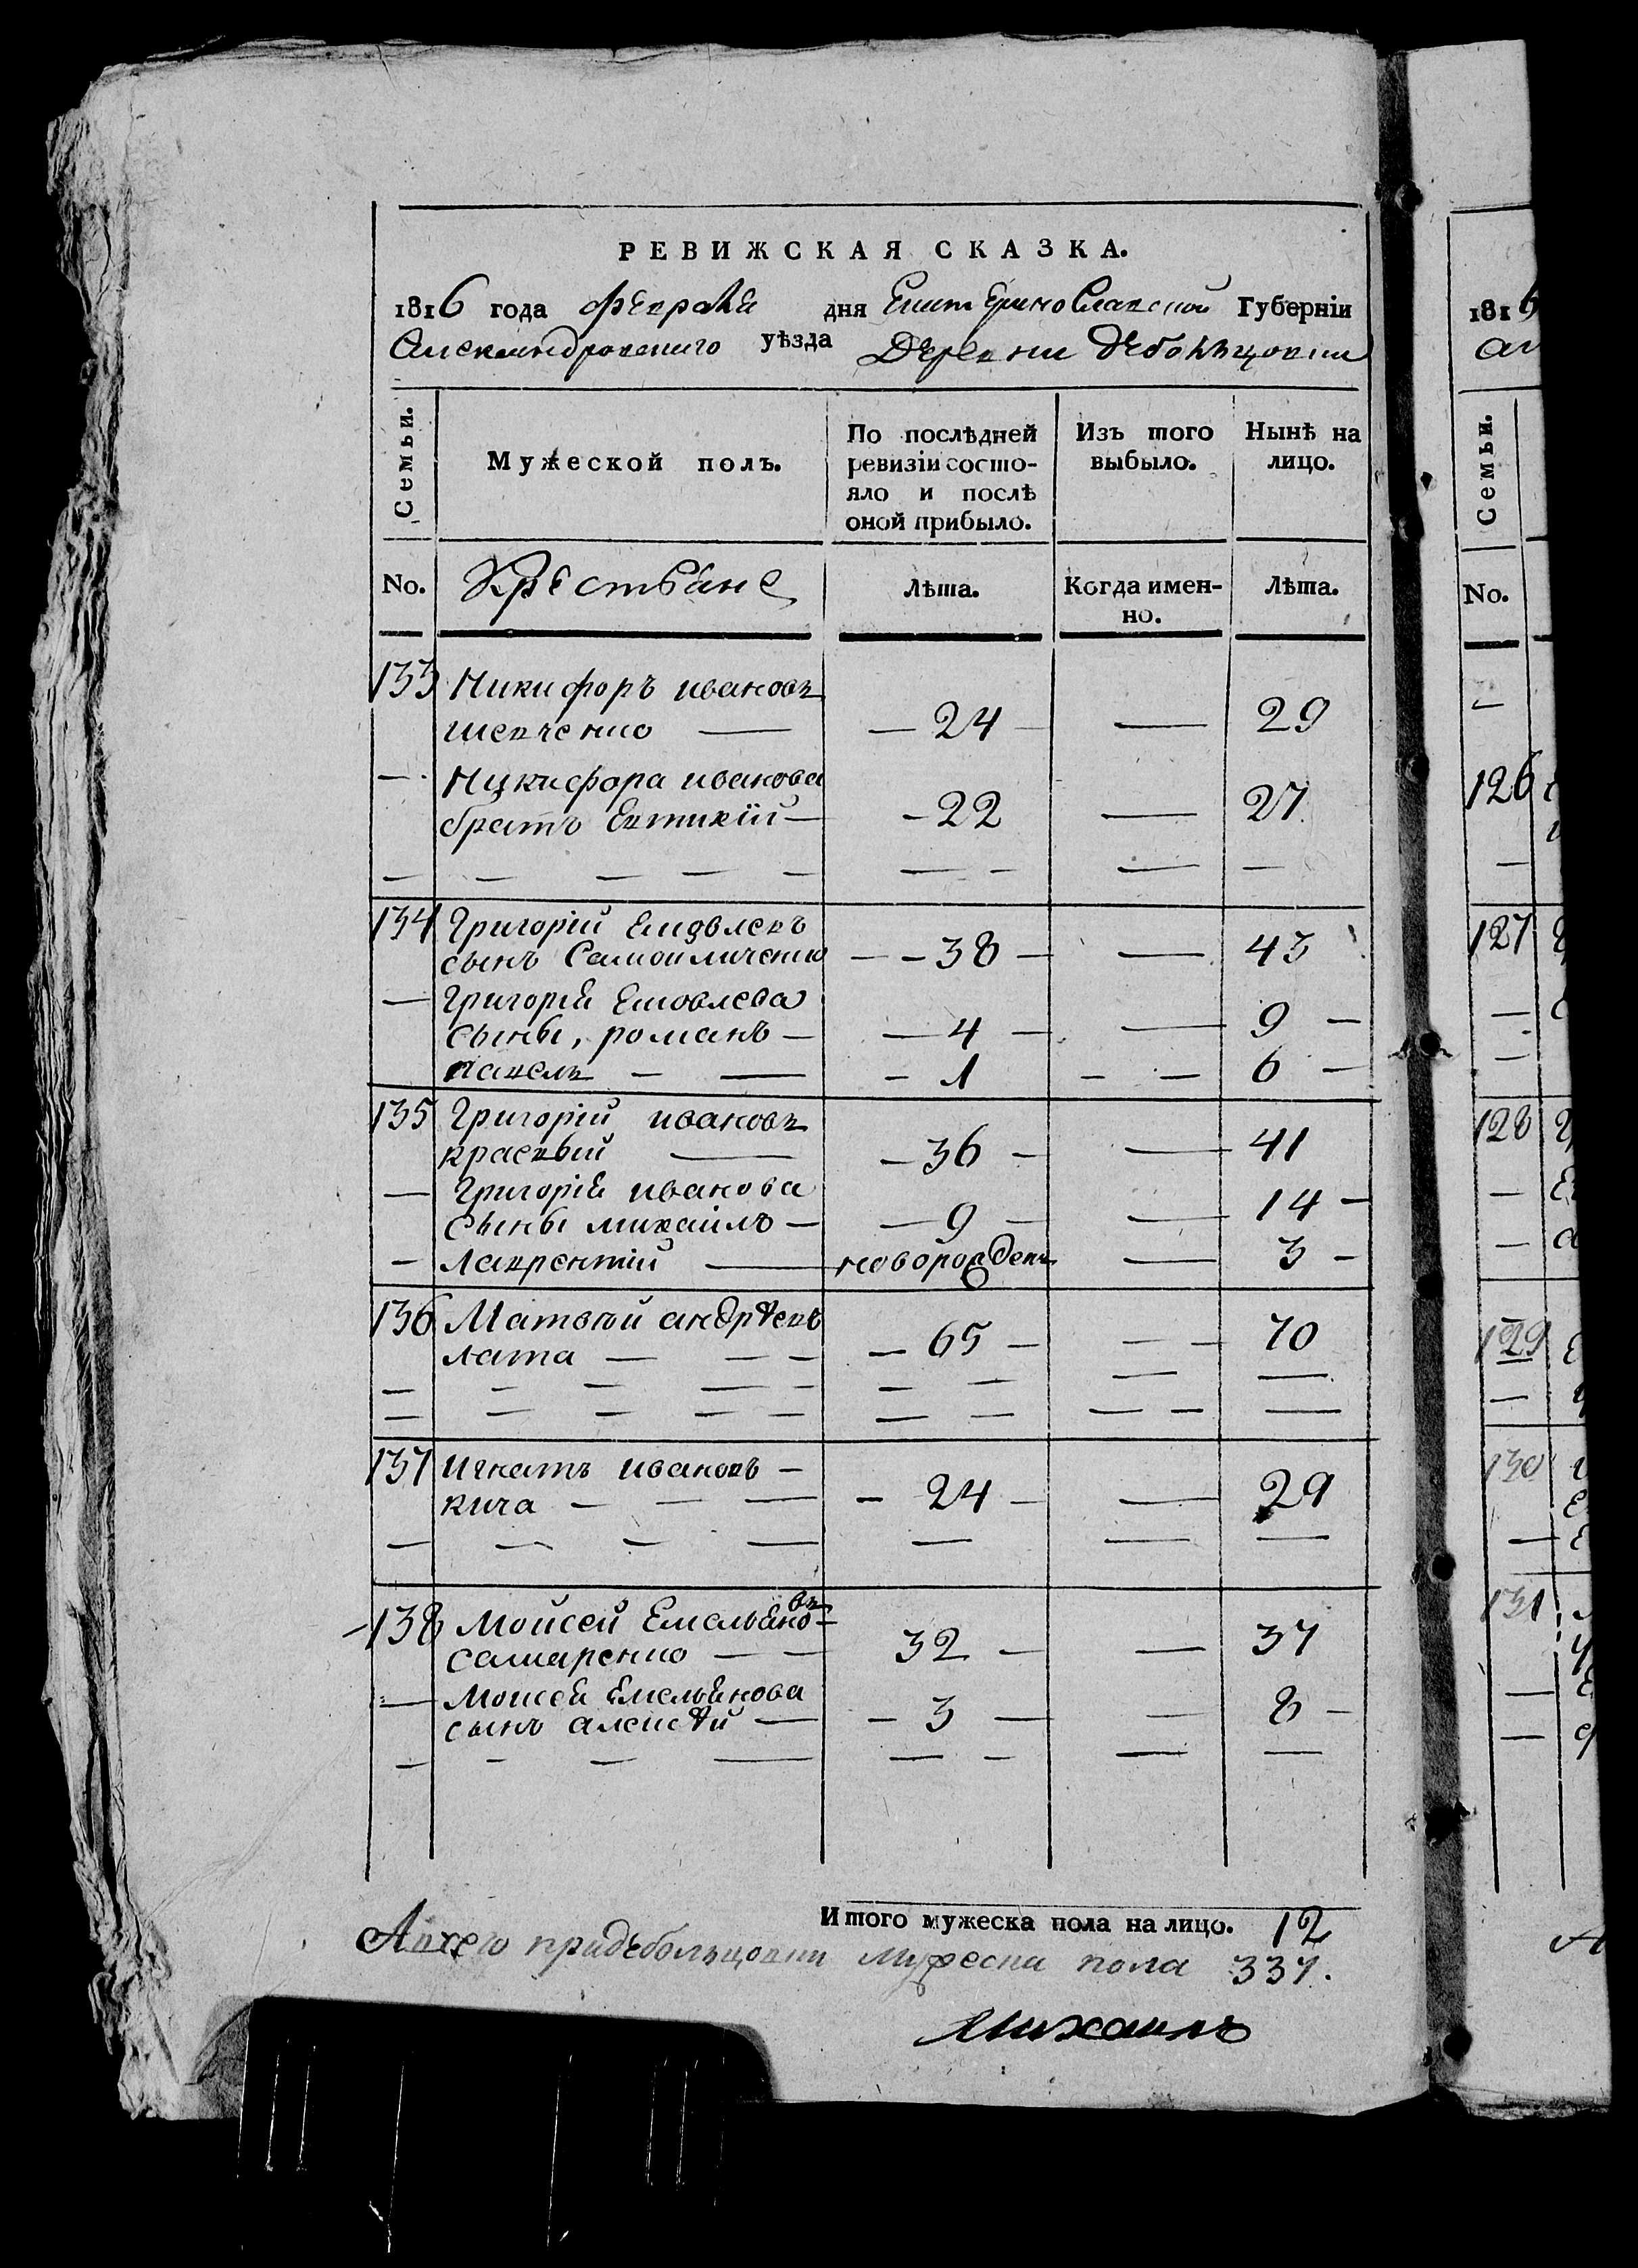 РЕВИЖСКАЯ СКАЗКА.
1816 года февраля дня Екатеринославской Губерніи
Александровскаго уѣзда Деревни дебольцовки
Семьи.
Мужеской полъ.
По послѣдней
ревизіи состо-
яло и послѣ
оной прибыло.
Изъ того
выбыло.
Нынѣ на
лицо.
No. Крестьяне Лѣта. Когда имен-
но. Лѣта.
133 Никифоръ ивановъ
шевченко — — 24 — — 29
— Никифора иванова
братъ Евтихїй — — 22 — 27
134 Григорій Яковлевъ
сынъ Самойличенко — — 38 — — 43
— Григорія Яковлева
сыны, романъ — — 4 — — 9 —
павелъ — — — 1 — — 6 —
135 Григорій ивановъ
красвый — — 36 — — 41
— Григорія иванова
сыны михаилъ — — 9 — — 14 —
— лаврентій — новорожденъ — 3 —
136 Матвѣй андрѣевъ
лата — — — — 65 — — — 70
137 игнатъ ивановъ —
кича — — — — 24 — — 29
138 Моисей Емельяновъ
самаренко — — 32 — — 37
— Моисея Емельянова
сынъ алексѣй — — 3 — — 8 —
Итого мужеска пола на лицо. 12
Авсего придебольцовки мужеска пола 337.
Михаилъ
1816
No.
126
127
128
129
130
131